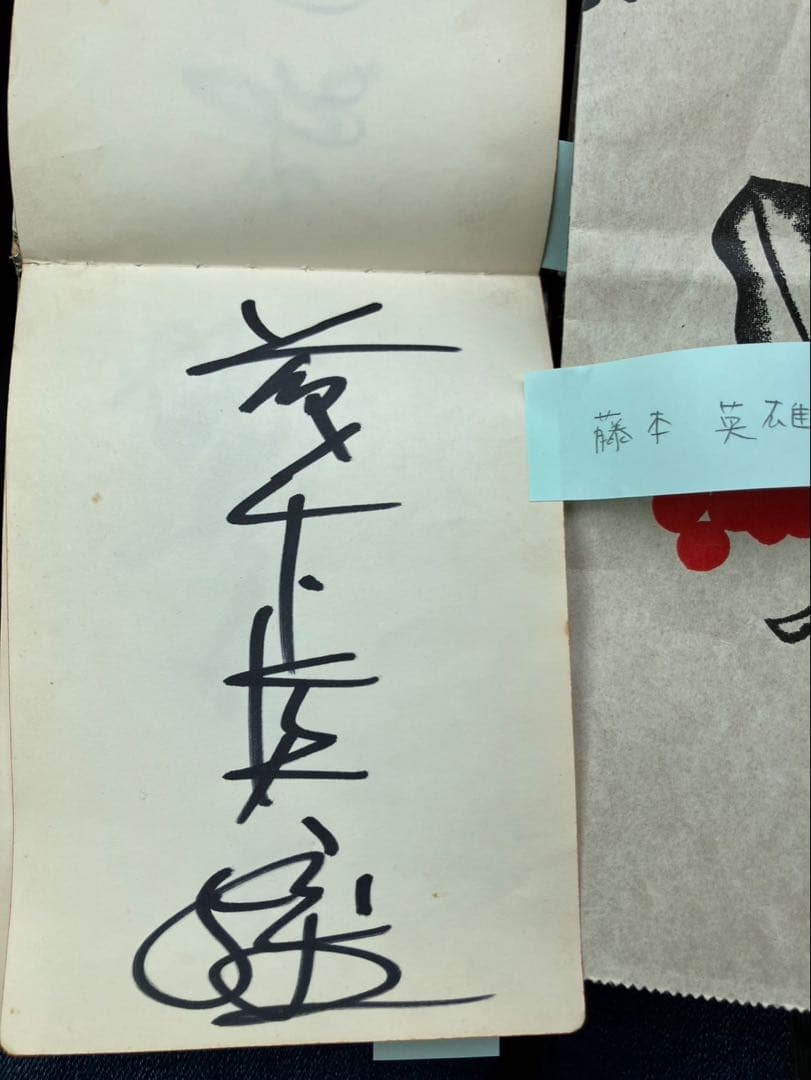 藤本英雄
藤本 英雄